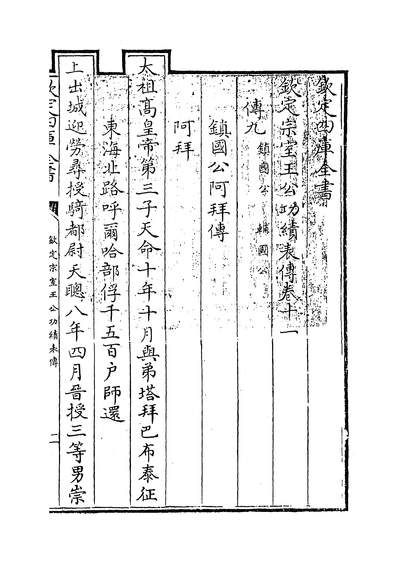 欽定四庫全書
欽定宗室王公功績表傳卷十一
傳九 鎮國公 輔國公
鎮國公阿拜傳
阿拜
太祖髙皇帝第三子天命十年十月與弟塔拜巴布泰征
東海北路呼爾哈部俘千五百户師還
上出城迎勞尋授騎都尉天聰八年四月晉授三等男崇
欽定四庫全書
欽定宗室王公功績表傳